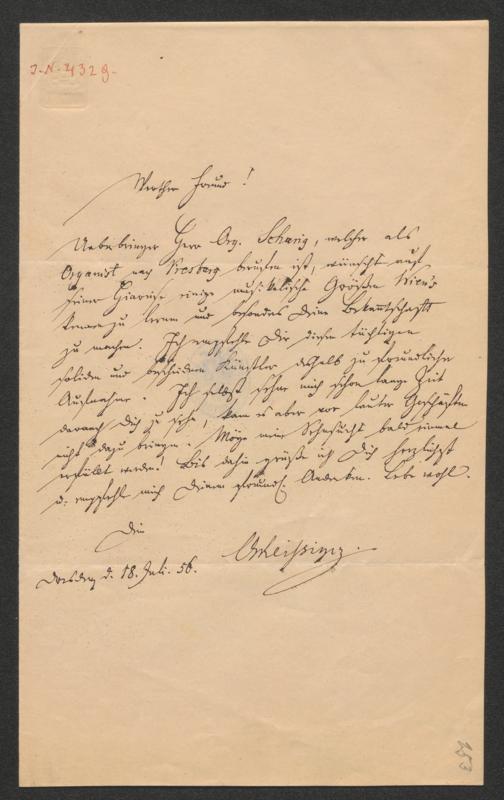 J.-N. 4329.
Werther Freund!
Ueberbringer Herr Org. Scharig, welcher als
Organist nach Presburg berufen ist, wünscht auf
seiner Hinreise einige musikalische Größen Wien's
kennen zu lernen und besonders Deine Bekanntschaft
zu machen. Ich empfehle Dir diesen tüchtigen
soliden und bescheidenen Künstler deshalb zu freundlicher
Aufnahme. Ich selbst sehne mich schon lange Zeit
darnach Dich zu sehen, kann es aber vor lauter Geschäften
nicht dazu bringen. Möge meine Sehnsucht bald einmal
erfüllt werden! Bis dahin grüße ich Dich herzlichst
u. empfehle mich Deinem freundl. Andenken. Lebe wohl.
Dein
Dresden d. 18. Juli. 56.
153